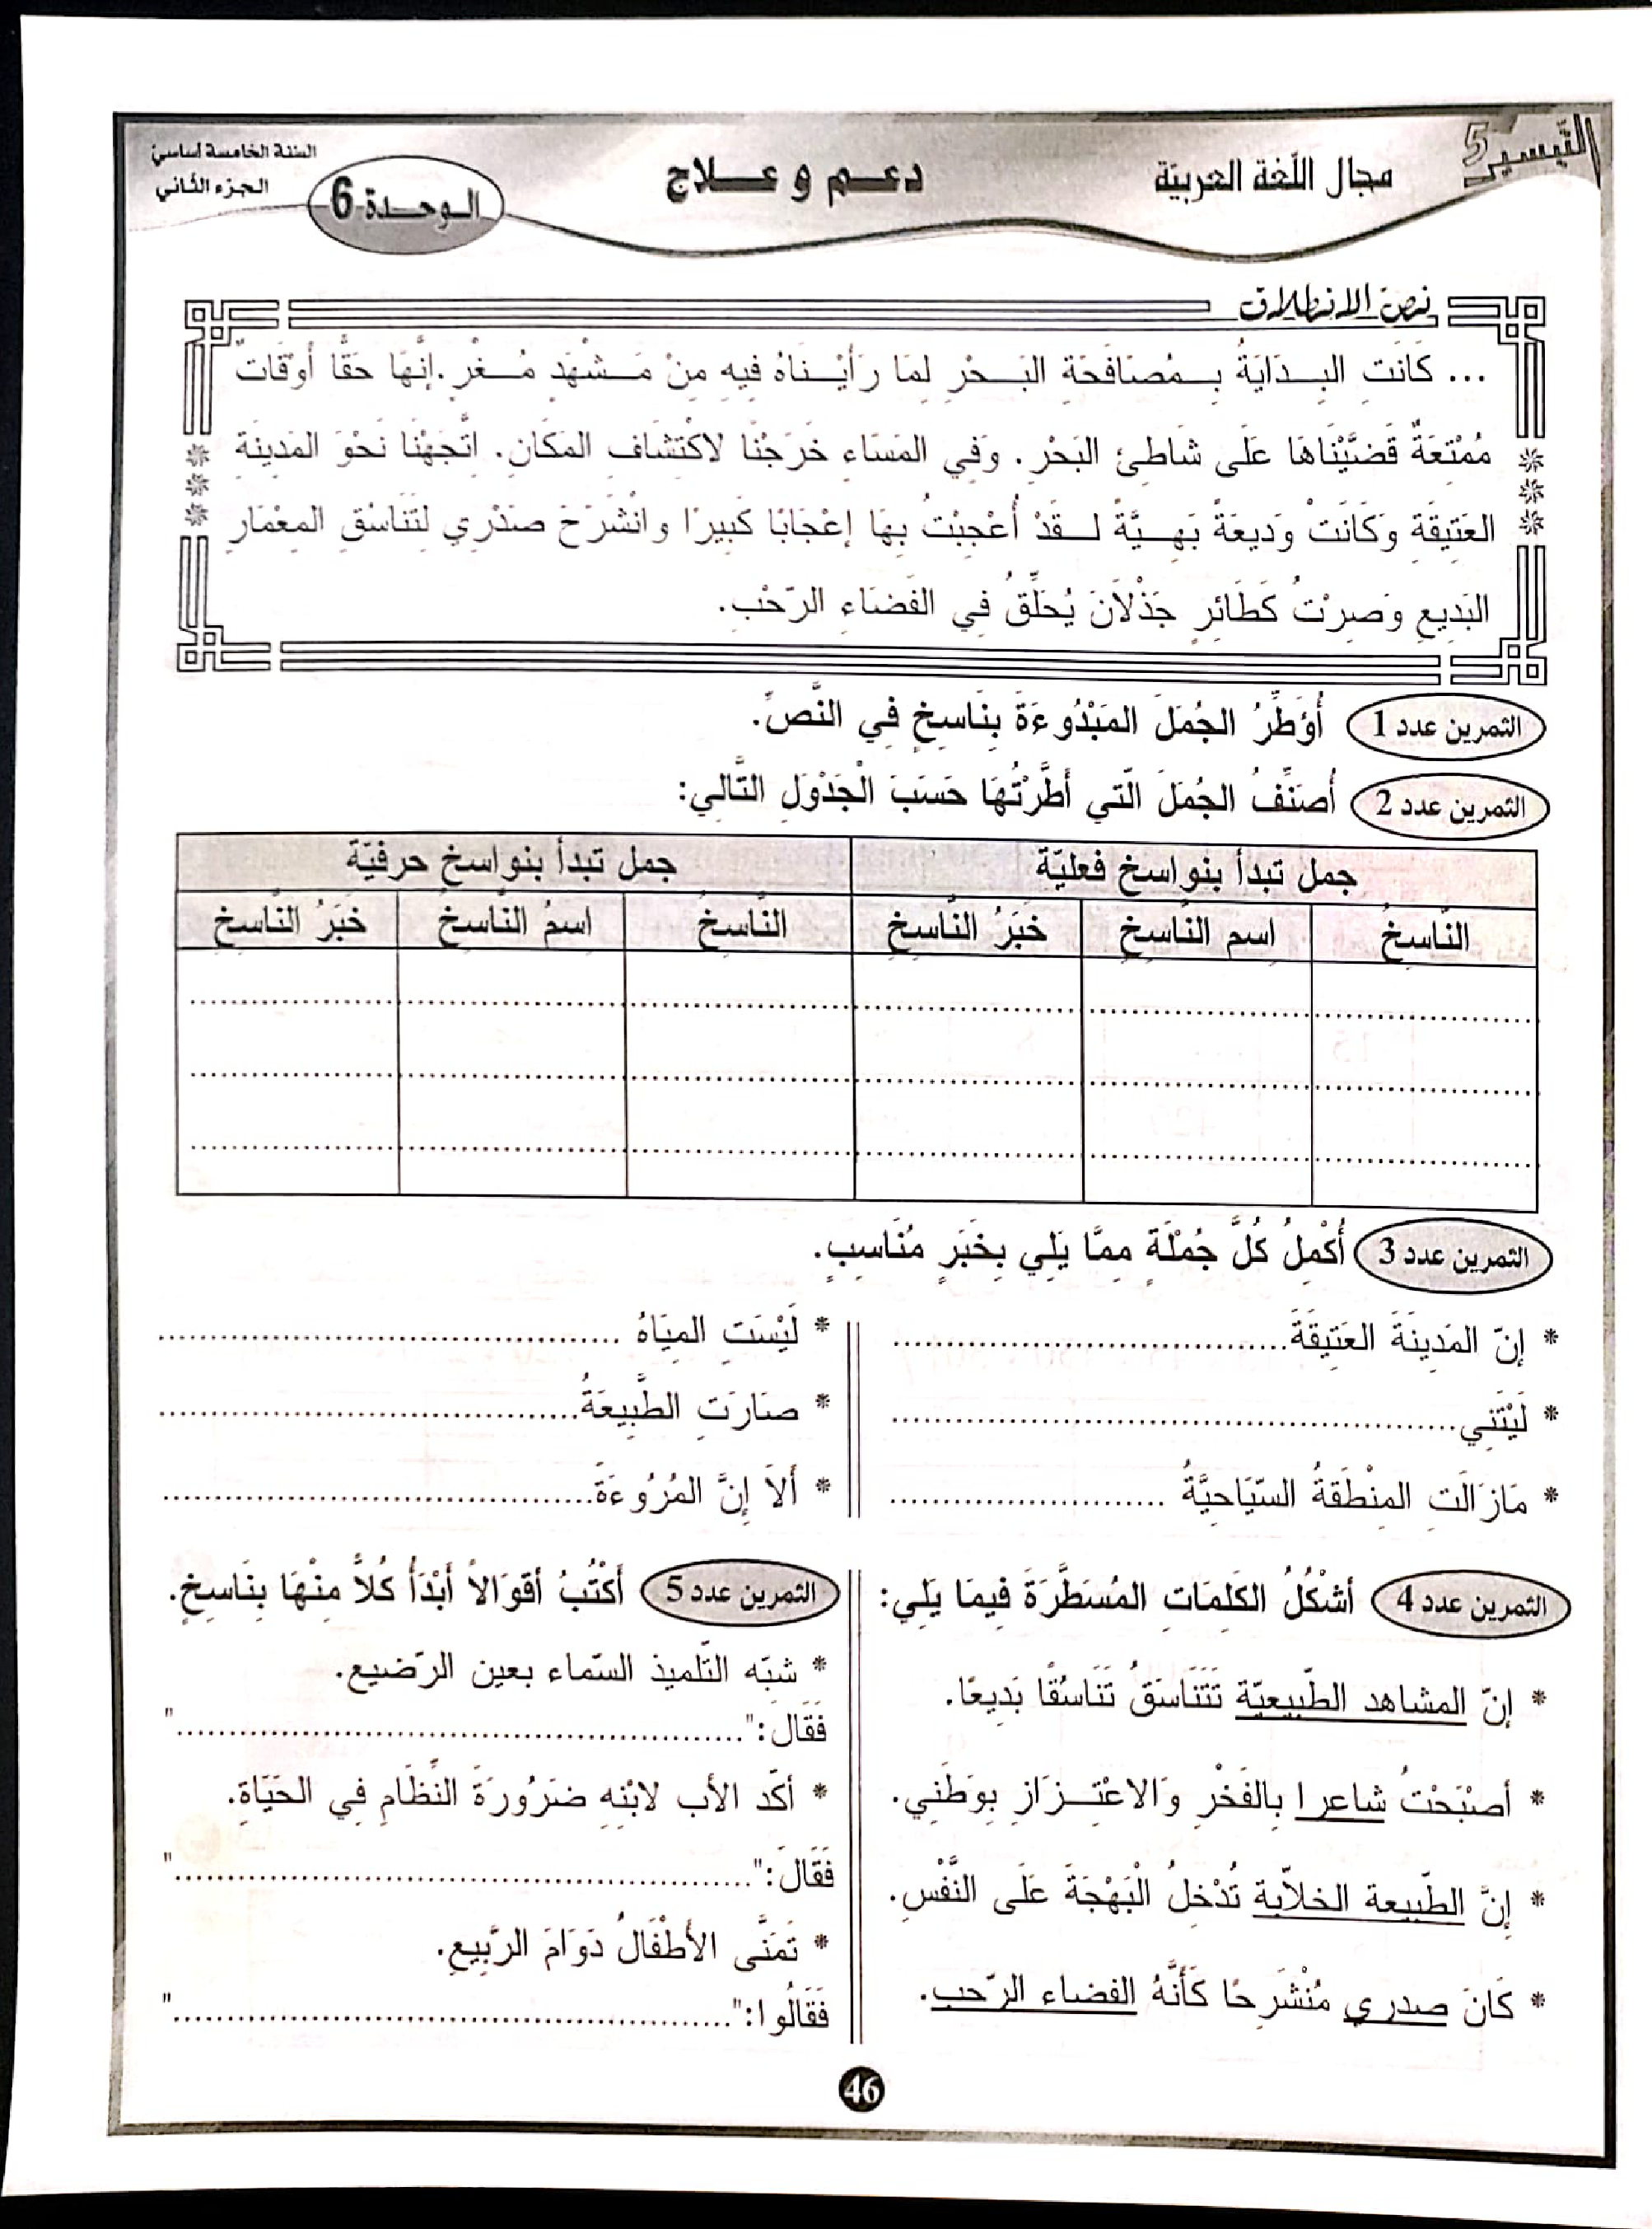 التيسير 5
مجال اللّغة العربيّة
دعم وعلاج
السنة الخامسة أساسيّ
الجزء الثّاني
الوحدة 6
نصّ الانطلاق
... كَانَتِ البِدَايَةُ بِمُصَافَحَةِ البَحْرِ لمَا رَأَيْنَاهُ فِيهِ مِنْ مَشْهَدٍ مُغْرٍ. إنَّهَا حَقًّا أوْقَاتٌ
مُمْتِعَةٌ قَضَّيْنَاهَا عَلَى شَاطِئِ البَحْرِ. وَفِي المَسَاءِ خَرَجْنَا لاكْتِشَافِ المَكَانِ. اتَّجَهْنَا نَحْوَ المَدِينَةِ
العَتِيقَةِ وَكَانَتْ وَدِيعَةً بَهِيَّةً لَقَدْ أُعْجِبْتُ بِهَا إعْجَابًا كَبِيرًا وانْشَرَحَ صَدْرِي لِتَنَاسُقِ المِعْمَارِ
البَدِيعِ وَصِرْتُ كَطَائِرٍ جَذْلاَنَ يُحَلِّقُ فِي الفَضَاءِ الرّحْبِ.
التمرين عدد 1 أُؤَطِّرُ الجُمَلَ المَبْدُوءَةَ بِنَاسِخٍ فِي النَّصِّ.
التمرين عدد 2 أُصَنِّفُ الجُمَلَ الّتِي أَطَّرْتُهَا حَسَبَ الْجَدْوَلِ التَّالِي:
جمل تبدأ بنواسخ فعليّة
جمل تبدأ بنواسخ حرفيّة
النّاسِخُ
اِسم النّاسِخِ
خَبَرُ النّاسِخِ
النّاسِخُ
اِسمُ النّاسِخِ
خَبَرُ النّاسِخِ
التمرين عدد 3 أُكْمِلُ كُلَّ جُمْلَةٍ مِمَّا يَلِي بِخَبَرٍ مُنَاسِبٍ.
* إنّ المَدِينَةَ العَتِيقَةَ......................................
* لَيْتَنِي......................................
* مَازَالَتِ المِنْطَقَةُ السّيَاحِيَّةُ ............................
* لَيْسَتِ المِيَاهُ ......................................
* صَارَتِ الطَّبِيعَةُ......................................
* أَلاَ إنَّ المُرُوءَةَ......................................
التمرين عدد 4 أشْكُلُ الكَلِمَاتِ المُسَطَّرَةَ فِيمَا يَلِي:
* إنّ المشاهد الطّبيعيّة تَتَنَاسَقُ تَنَاسُقًا بَدِيعًا.
* أصْبَحْتُ شاعرا بِالفَخْرِ وَالاعْتِزَازِ بِوَطَنِي.
* إنَّ الطّبيعة الخلاّبة تُدْخِلُ الْبَهْجَةَ عَلَى النَّفْسِ.
* كَانَ صدري مُنْشَرِحًا كَأَنَّهُ الفضاء الرّحب.
التمرين عدد 5 أكْتُبُ أقوَالاً أَبْدَأُ كُلاًّ مِنْهَا بِنَاسِخٍ.
* شبّه التّلميذ السّماء بعين الرّضيع.
فَقَالَ:"......................................"
* أكّد الأب لابْنِهِ ضَرُورَةَ النِّظَامِ فِي الحَيَاةِ.
فَقَالَ:"......................................"
* تَمَنَّى الأطْفَالُ دَوَامَ الرَّبِيعِ.
فَقَالُوا:"......................................"
46